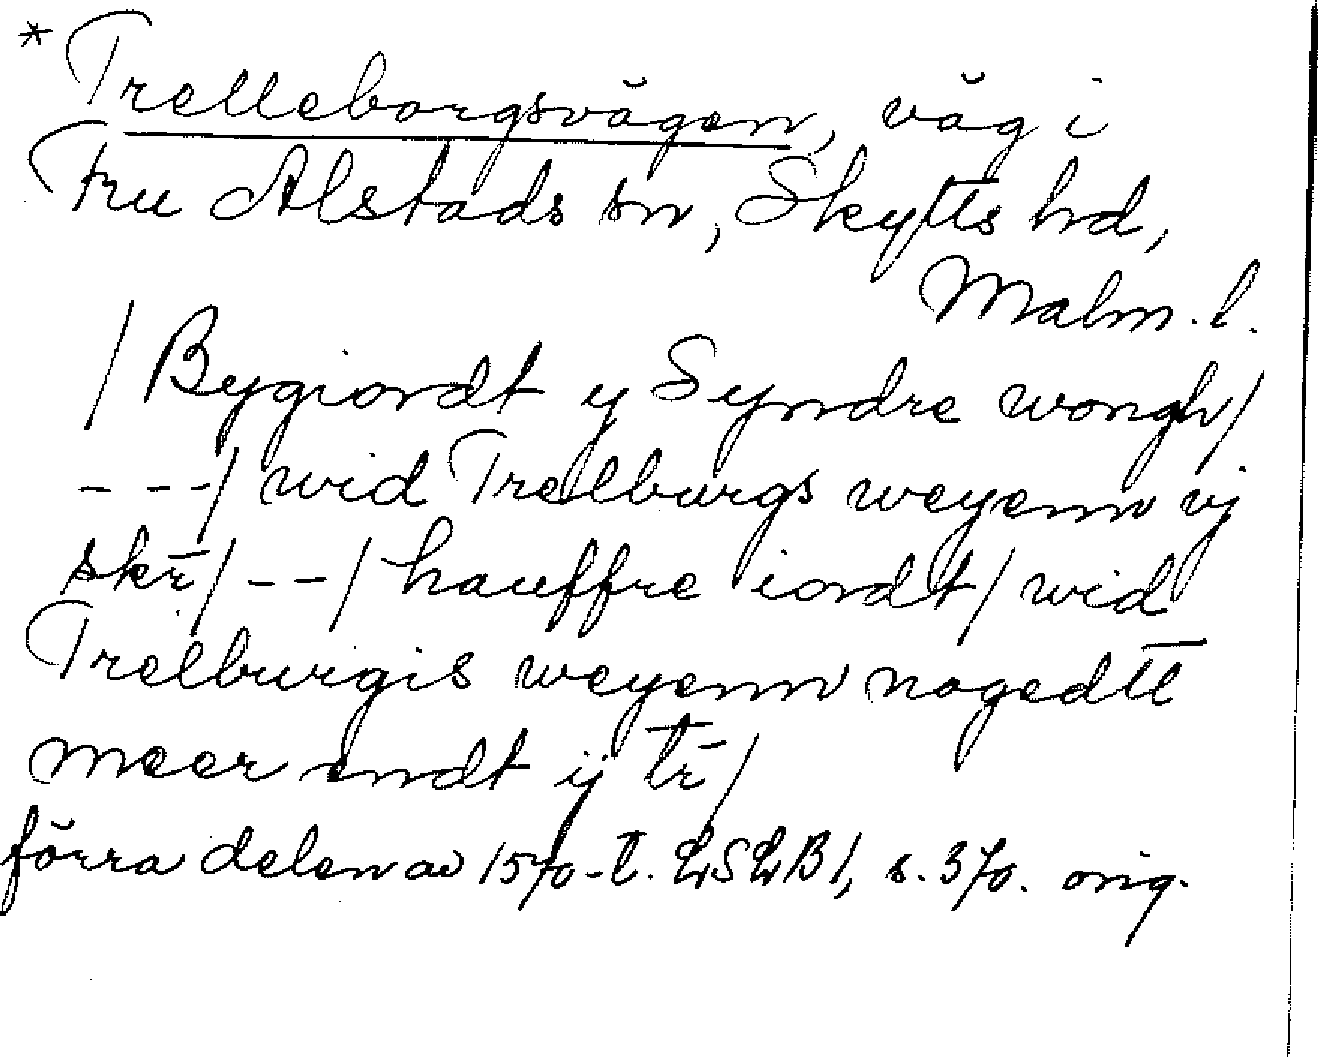 * Trelleborgsvägen, väg i
Fru Alstads sn, Skytts hd,
Malm. l.
/ Bygiordt y Syndre wongh/
- - -/ wid Trelburgs weyenn vj
skr̄/ - - / hauffre iordt/ wid
Trelburgis weyenn nogedtt
meer endt ij tr̄/
förra delen av 1570-t. LSLB 1, s. 370. orig.